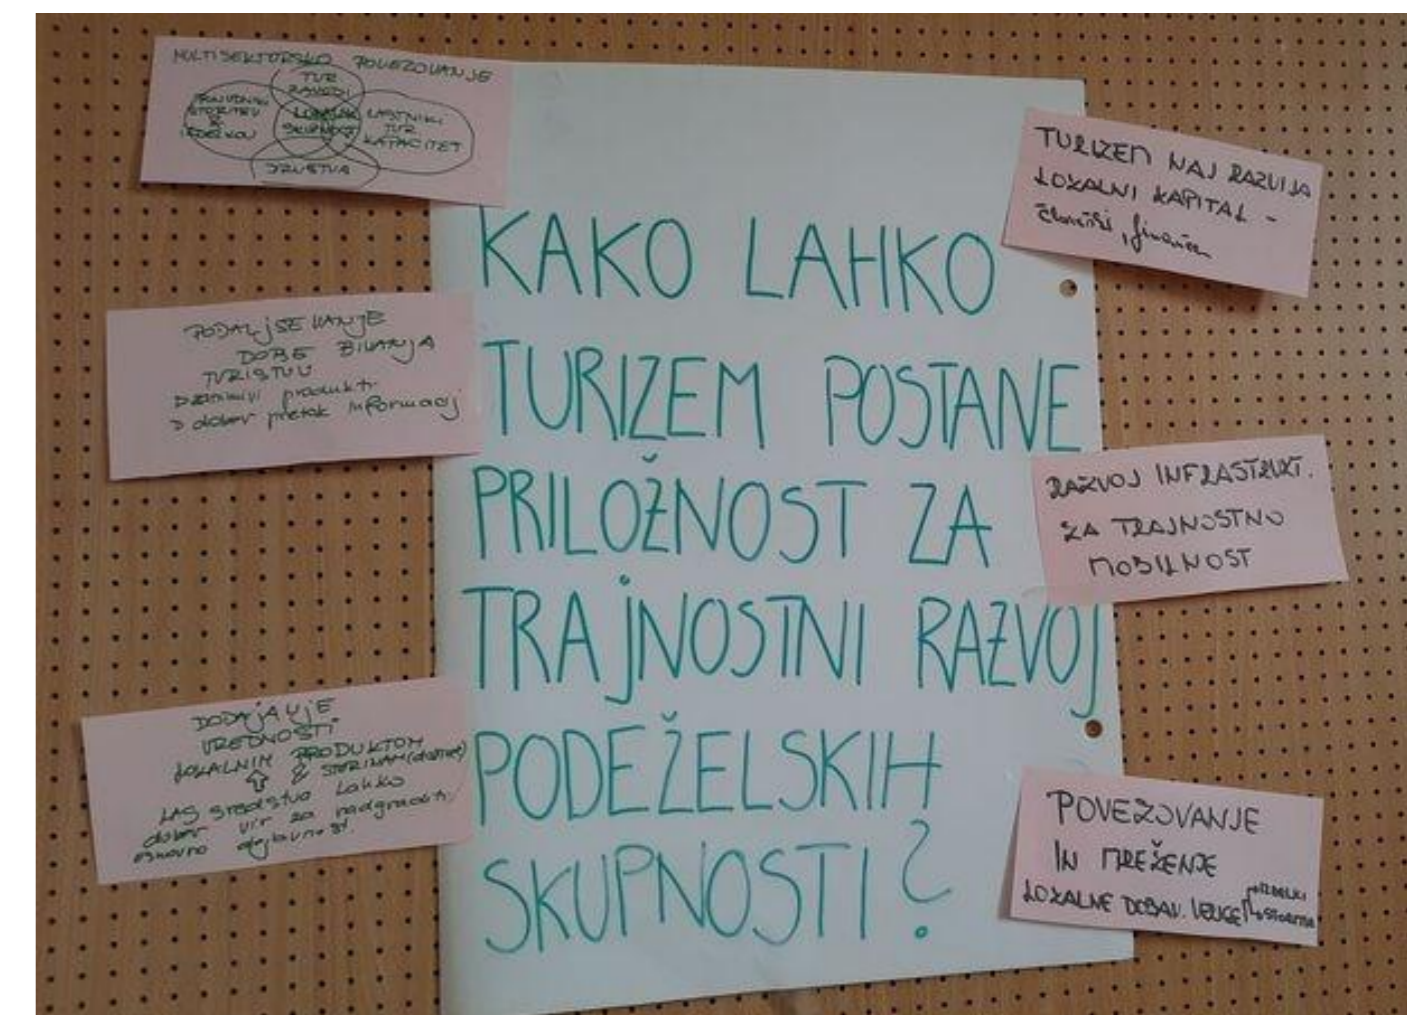 MULTISEKTORSKO POVEZOVANJE
TUR
ZAVODI
STORITEV
&
IZDELKOV
LOKALNA
SKUPNOST
LASTNIKI
TUR
KAPACITET
DRUŠTVA
PODALJŠEVANJE
DOBE BIVANJA
TURISTOV
zanimivi produkti
> dober pretok informacij
DODAJANJE
VREDNOSTI
LOKALNIM PRODUKTOM
&
LAS sredstva lahko
dober vir za nadgraditi
osnovno dejavnost.
KAKO LAHKO
TURIZEM POSTANE
PRILOŽNOST ZA
TRAJNOSTNI RAZVOJ
PODEŽELSKIH
SKUPNOSTI?
TURIZEM NAJ RAZVIJA
LOKALNI KAPITAL -
človeški, finančen
RAZVOJ INFRASTRUKT.
ZA TRAJNOSTNO
MOBILNOST
POVEZOVANJE
IN MREŽENJE
LOKALNE DOBAV. VERIGE
IZDELKI
STORITVE